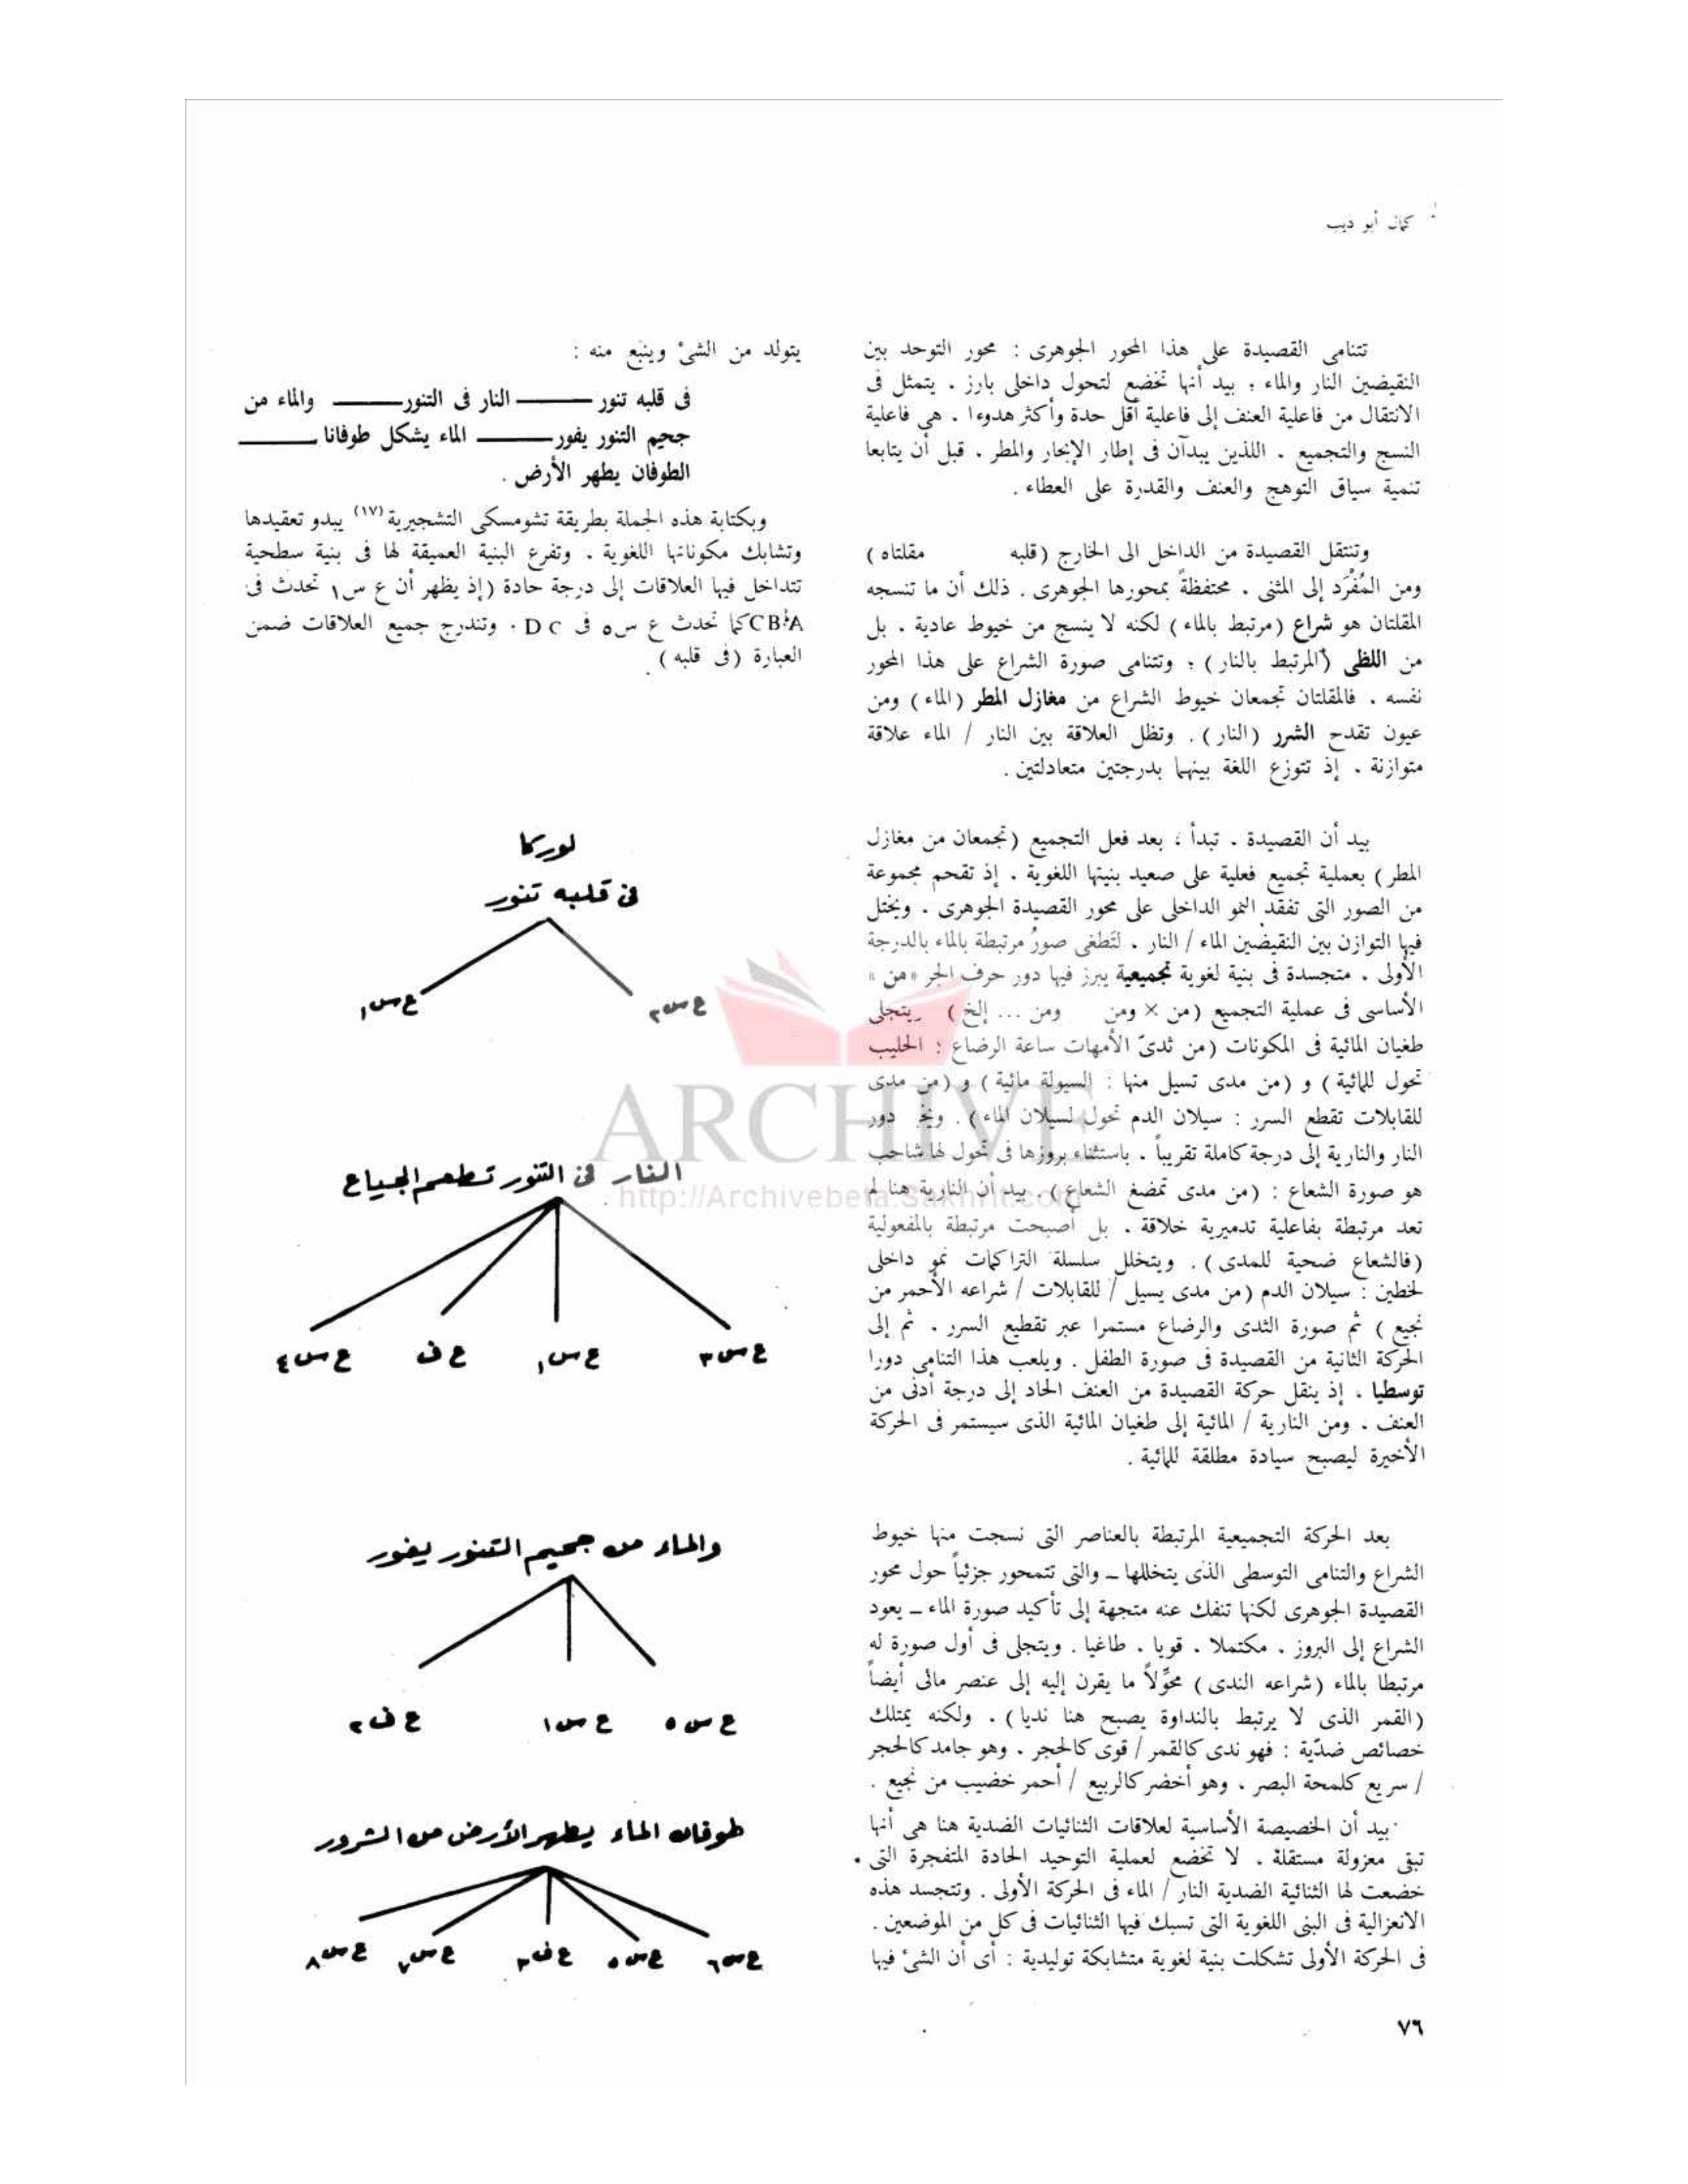 كمال أبو ديب
تتنامى القصيدة على هذا المحور الجوهرى : محور التوحد بين
النقيضين النار والماء ؛ بيد أنها تخضع لتحول داخلى بارز . يتمثل فى
الانتقال من فاعلية العنف إلى فاعلية أقل حدة وأكثر هدوءا . هى فاعلية
النسج والتجميع . اللذين يبدآن فى إطار الإبحار والمطر . قبل أن يتابعا
تنمية سياق التوهج والعنف والقدرة على العطاء .
وتنتقل القصيدة من الداخل الى الخارج (قلبه مقلتاه )
ومن المُفْرَد إلى المثنى . محتفظةً بمحورها الجوهرى . ذلك أن ما تنسجه
المقلتان هو شراع (مرتبط بالماء ) لكنه لا ينسج من خيوط عادية . بل
من اللظى (المرتبط بالنار ) ؛ وتتنامى صورة الشراع على هذا المحور
نفسه . فالمقلتان تجمعان خيوط الشراع من مغازل المطر (الماء ) ومن
عيون تقدح الشرر (النار ) . وتظل العلاقة بين النار / الماء علاقة
متوازنة . إذ تتوزع اللغة بينهما بدرجتين متعادلتين .
بيد أن القصيدة . تبدأ ، بعد فعل التجميع (تجمعان من مغازل
المطر ) بعملية تجميع فعلية على صعيد بنيتها اللغوية . إذ تقحم مجموعة
من الصور التى تفقد النمو الداخلى على محور القصيدة الجوهرى . ويختل
فيها التوازن بين النقيضين الماء / النار . لتَطغى صورٌ مرتبطة بالماء بالدرجة
الأولى . متجسدة فى بنية لغوية تجميعية يبرز فيها دور حرف الجر «من »
الأساسى فى عملية التجميع (من × ومن ومن ... إلخ ) ويتجلى
طغيان المائية فى المكونات (من ثدىّ الأمهات ساعة الرضاع : الحليب
تحول للمائية ) و (من مدى تسيل منها : السيولة مائية ) و (من مدى
للقابلات تقطع السرر : سيلان الدم تحول لسيلان الماء ) . دور
النار والنارية إلى درجة كاملة تقريباً . باستثناء بروزها فى تحول لها شاحب
هو صورة الشعاع : (من مدى تمضغ الشعاع ) . بيد أن النارية هنا لم
تعد مرتبطة بفاعلية تدميرية خلاقة . بل أصبحت مرتبطة بالمفعولية
(فالشعاع ضحية للمدى ) . ويتخلل سلسلة التراكمات نمو داخلى
لخطين : سيلان الدم (من مدى يسيل / للقابلات / شراعه الأحمر من
نجيع ) ثم صورة الثدى والرضاع مستمرا عبر تقطيع السرر . ثم إلى
الحركة الثانية من القصيدة فى صورة الطفل . ويلعب هذا التنامى دورا
توسطيا . إذ ينقل حركة القصيدة من العنف الحاد إلى درجة أدنى من
العنف . ومن النارية / المائية إلى طغيان المائية الذى سيستمر فى الحركة
الأخيرة ليصبح سيادة مطلقة للمائية .
بعد الحركة التجميعية المرتبطة بالعناصر التى نسجت منها خيوط
الشراع والتنامى التوسطى الذى يتخللها ــ والتى تتمحور جزئياً حول محور
القصيدة الجوهرى لكنها تنفك عنه متجهة إلى تأكيد صورة الماء ــ يعود
الشراع إلى البروز . مكتملا . قويا . طاغيا . ويتجلى فى أول صورة له
مرتبطا بالماء (شراعه الندى ) محوِّلاً ما يقرن إليه إلى عنصر مائى أيضاً
(القمر الذى لا يرتبط بالنداوة يصبح هنا نديا ) . ولكنه يمتلك
خصائص ضدّية : فهو ندى كالقمر / قوى كالحجر . وهو جامد كالحجر
/ سريع كلمحة البصر . وهو أخضر كالربيع / أحمر خضيب من نجيع .
بيد أن الخصيصة الأساسية لعلاقات الثنائيات الضدية هنا هى أنها
تبقى معزولة مستقلة . لا تخضع لعملية التوحيد الحادة المتفجرة التى
خضعت لها الثنائية الضدية النار / الماء فى الحركة الأولى . وتتجسد هذه
الانعزالية فى البنى اللغوية التى تسبك فيها الثنائيات فى كل من الموضعين .
فى الحركة الأولى تشكلت بنية لغوية متشابكة توليدية : أى أن الشئ فيها
يتولد من الشئ وينبع منه :
فى قلبه تنور ــــــ النار فى التنور ــــــ والماء من
جحيم التنور يفور ــــــ الماء يشكل طوفانا ــــــ
الطوفان يطهر الأرض .
وبكتابة هذه الجملة بطريقة تشومسكى التشجيرية (١٧) يبدو تعقيدها
وتشابك مكوناتها اللغوية . وتفرع البنية العميقة لها فى بنية سطحية
تتداخل فيها العلاقات إلى درجة حادة (إذ يظهر أن ع س١ تحدث فى
CBA كما تحدث ع س٥ فى D C . وتندرج جميع العلاقات ضمن
العبارة (فى قلبه ) .
لوركا
فى قلبه تنور
ع س٢ ع س١
النار فى التنور تطعم الجياع
ع س٣ ع س١ ع ف ع س٤
والماء من جحيم التنور يفور
ع س٥ ع س١ ع ف٢
طوفان الماء يطهر الأرض من الشرور
ع س٦ ع س٥ ع ف٣ ع س٧ ع س٨
٧٦
ARCHIVE
http://Archivebeta.Sakhrit.com